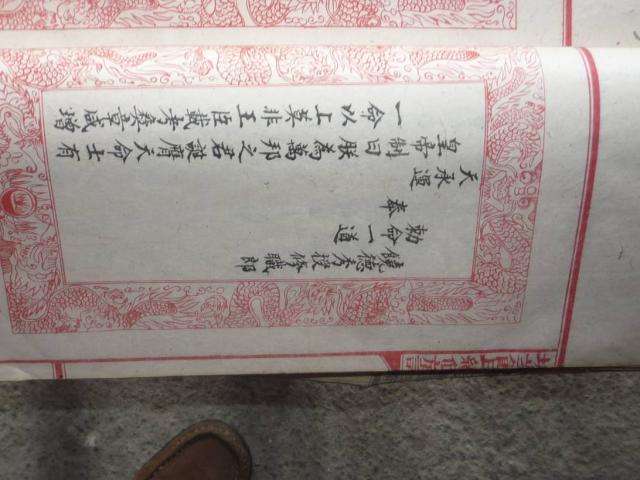 饒德秀授修職郎
勅命一道
奉
天承運
皇帝制曰朕為萬邦之君誕膺天命士有
一命以上莫非王臣載考彝章咸增